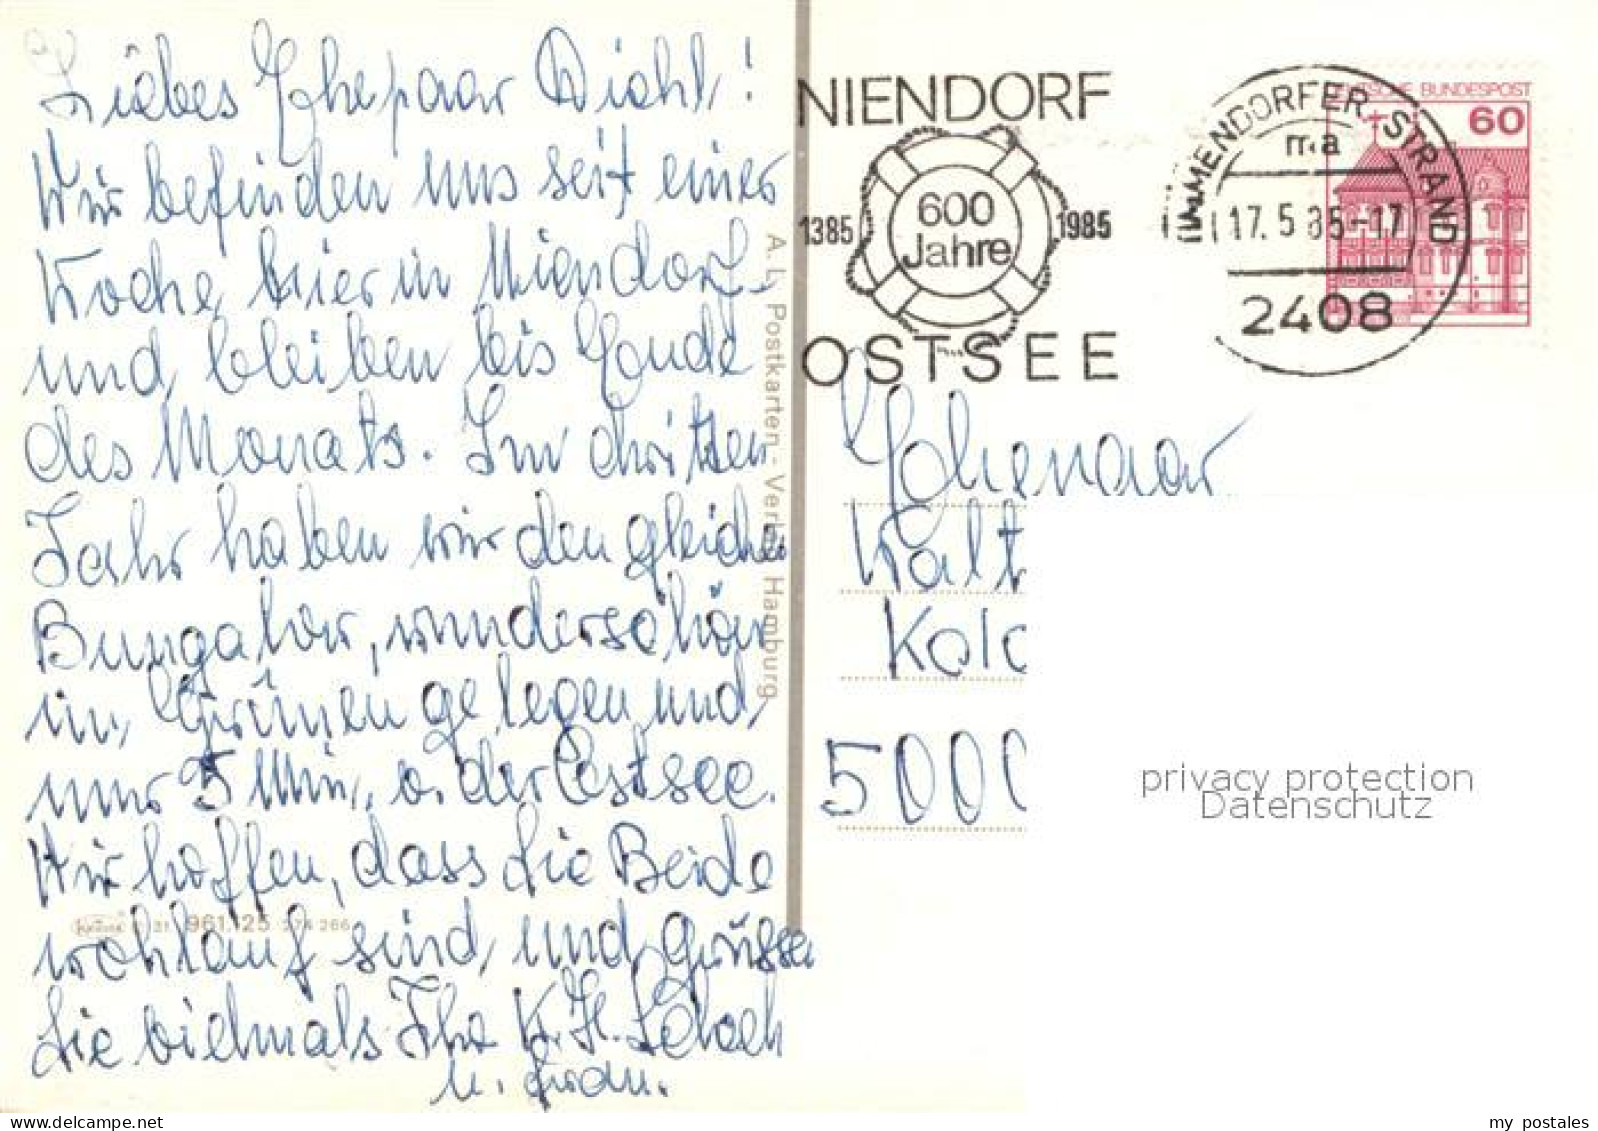 Liebes Ehepaar Diehl!
Wir befinden uns seit einer
Woche hier in Niendorf
und bleiben bis Ende
des Monats. Im dritten
Jahr haben wir den gleichen
Bungalow, wunderschön
im Grünen gelegen und
nur 5 Min. v. der Ostsee.
Wir hoffen, dass Sie Beide
wohlauf sind, und grüssen
Sie vielmals Ihr K. H.
u. Frau.
A. L. Postkarten-Verlag Hamburg
961.125 274 266
NIENDORF
1385 600 Jahre 1985
OSTSEE
TIMMENDORFER STRAND
17. 5 85-17
2408
DEUTSCHE BUNDESPOST
60
Ehepaar
Walt
5000
privacy protection
Datenschutz
my postales